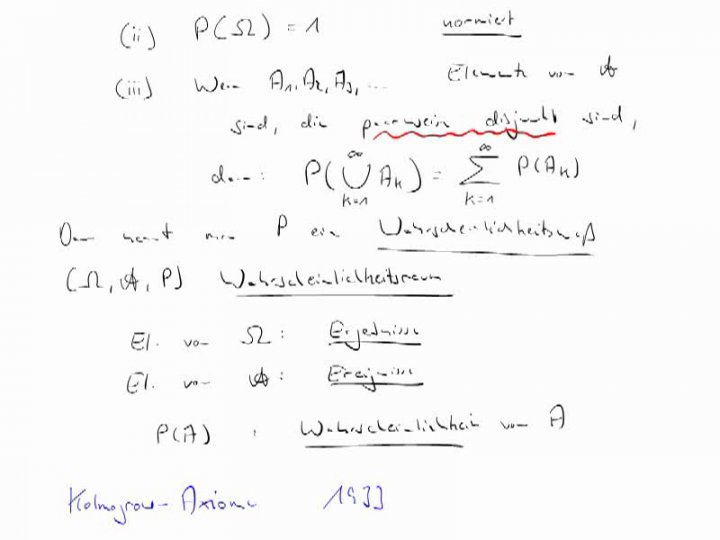 (ii) P(Ω) = 1 normiert
(iii) Wenn A₁, A₂, A₃, ... Elemente von 𝒜
sind, die paarweise disjunkt sind,
dann: P(⋃_{k=1}^{∞} A_k) = ∑_{k=1}^{∞} P(A_k)
Dann nennt man P ein Wahrscheinlichkeitsmaß
(Ω, 𝒜, P) Wahrscheinlichkeitsraum
El. von Ω: Ergebnisse
El. von 𝒜: Ereignisse
P(A) : Wahrscheinlichkeit von A
Kolmogrow-Axiome 1933